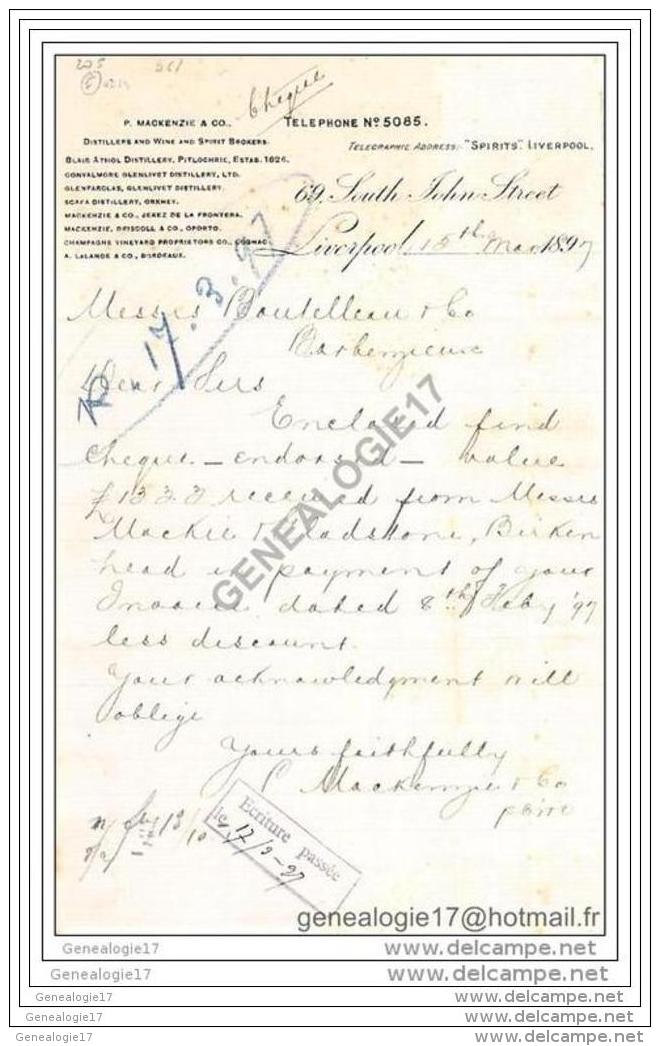 205 261
Cheque
P. MACKENZIE & CO., TELEPHONE No 5085.
DISTILLERS AND WINE AND SPIRIT BROKERS.
TELEGRAPHIC ADDRESS:- "SPIRITS", LIVERPOOL.
BLAIR ATHOL DISTILLERY, PITLOCHRIE, ESTAB. 1826.
CONVALMORE GLENLIVET DISTILLERY, LTD.
GLENFARCLAS, GLENLIVET DISTILLERY.
69, South John Street
SCAPA DISTILLERY, ORKNEY.
MACKENZIE & CO., JEREZ DE LA FRONTERA.
MACKENZIE, DRISCOLL & CO., OPORTO.
CHAMPAGNE VINEYARD PROPRIETORS CO., COGNAC.
A. LALANDE & CO., BORDEAUX.
Liverpool, 15th Mar 1897
R 17.3.97
Messrs Boutelleau & Co
Barbezieux
Dear Sirs
Enclosed find
cheque - endorsed - value
£13 3.3 received from Messrs
Mackie & Gladstone, Birken
head in payment of your
Invoice dated 8th Feby '97
less discount.
Your acknowledgment will
oblige
Yours faithfully
P Mackenzie & Co
Ecriture passée
le 17/3-97
GENEALOGIE17
genealogie17@hotmail.fr
Genealogie17 www.delcampe.net
Genealogie17 www.delcampe.net
Genealogie17 www.delcampe.net
Genealogie17 www.delcampe.net
Genealogie17 www.delcampe.net